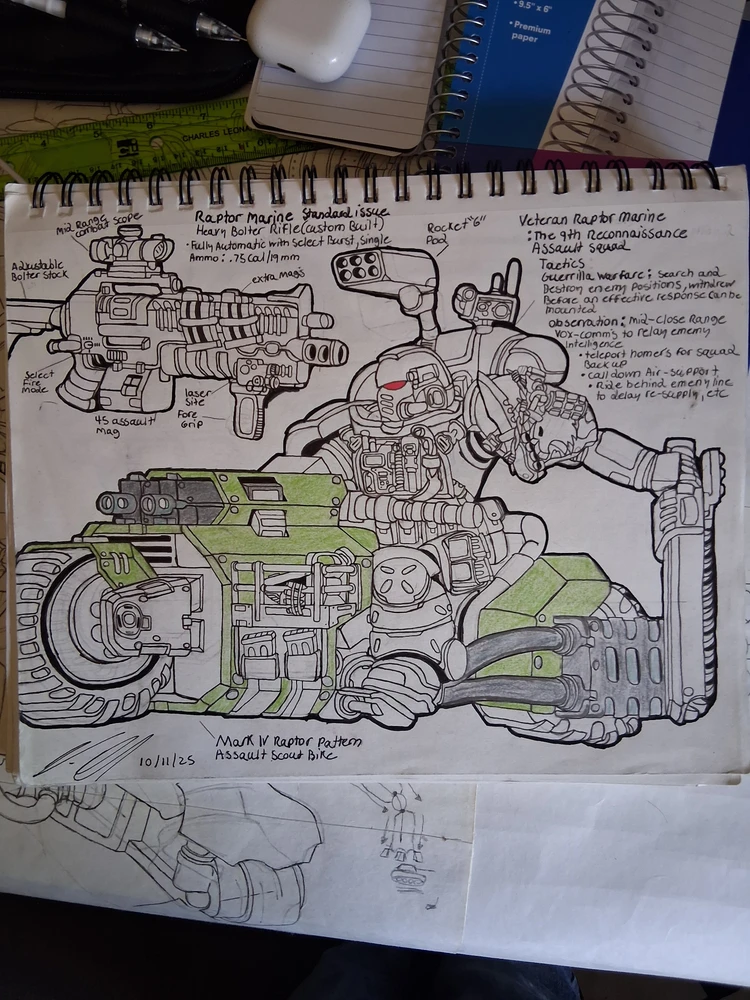 • 9.5" x 6"
• Premium
paper
CHARLES LEONA
Raptor Marine Standard issue
Heavy Bolter Rifle (Custom Built)
- Fully Automatic with Select Burst, Single
Ammo: .75 Cal/19mm
Mid Range
combat scope
Adjustable
Bolter Stock
extra mag's
Select
Fire
Mode
45 assault
Mag
laser
Site
Fore
Grip
Rocket "6"
Pod
Veteran Raptor Marine
: The 9th Reconnaissance
Assault Squad
Tactics
Guerrilla warfare: search and
Destroy enemy positions, withdrew
Before an effective response can be
mounted
observation: mid-close Range
Vox-comm's to relay enemy
Intelligence
• teleport homer's for squad
Back up
• call down Air-support
• Ride behind emeny line
to delay re-supply, etc
Mark IV Raptor Pattern
Assault Scout Bike
10/11/25